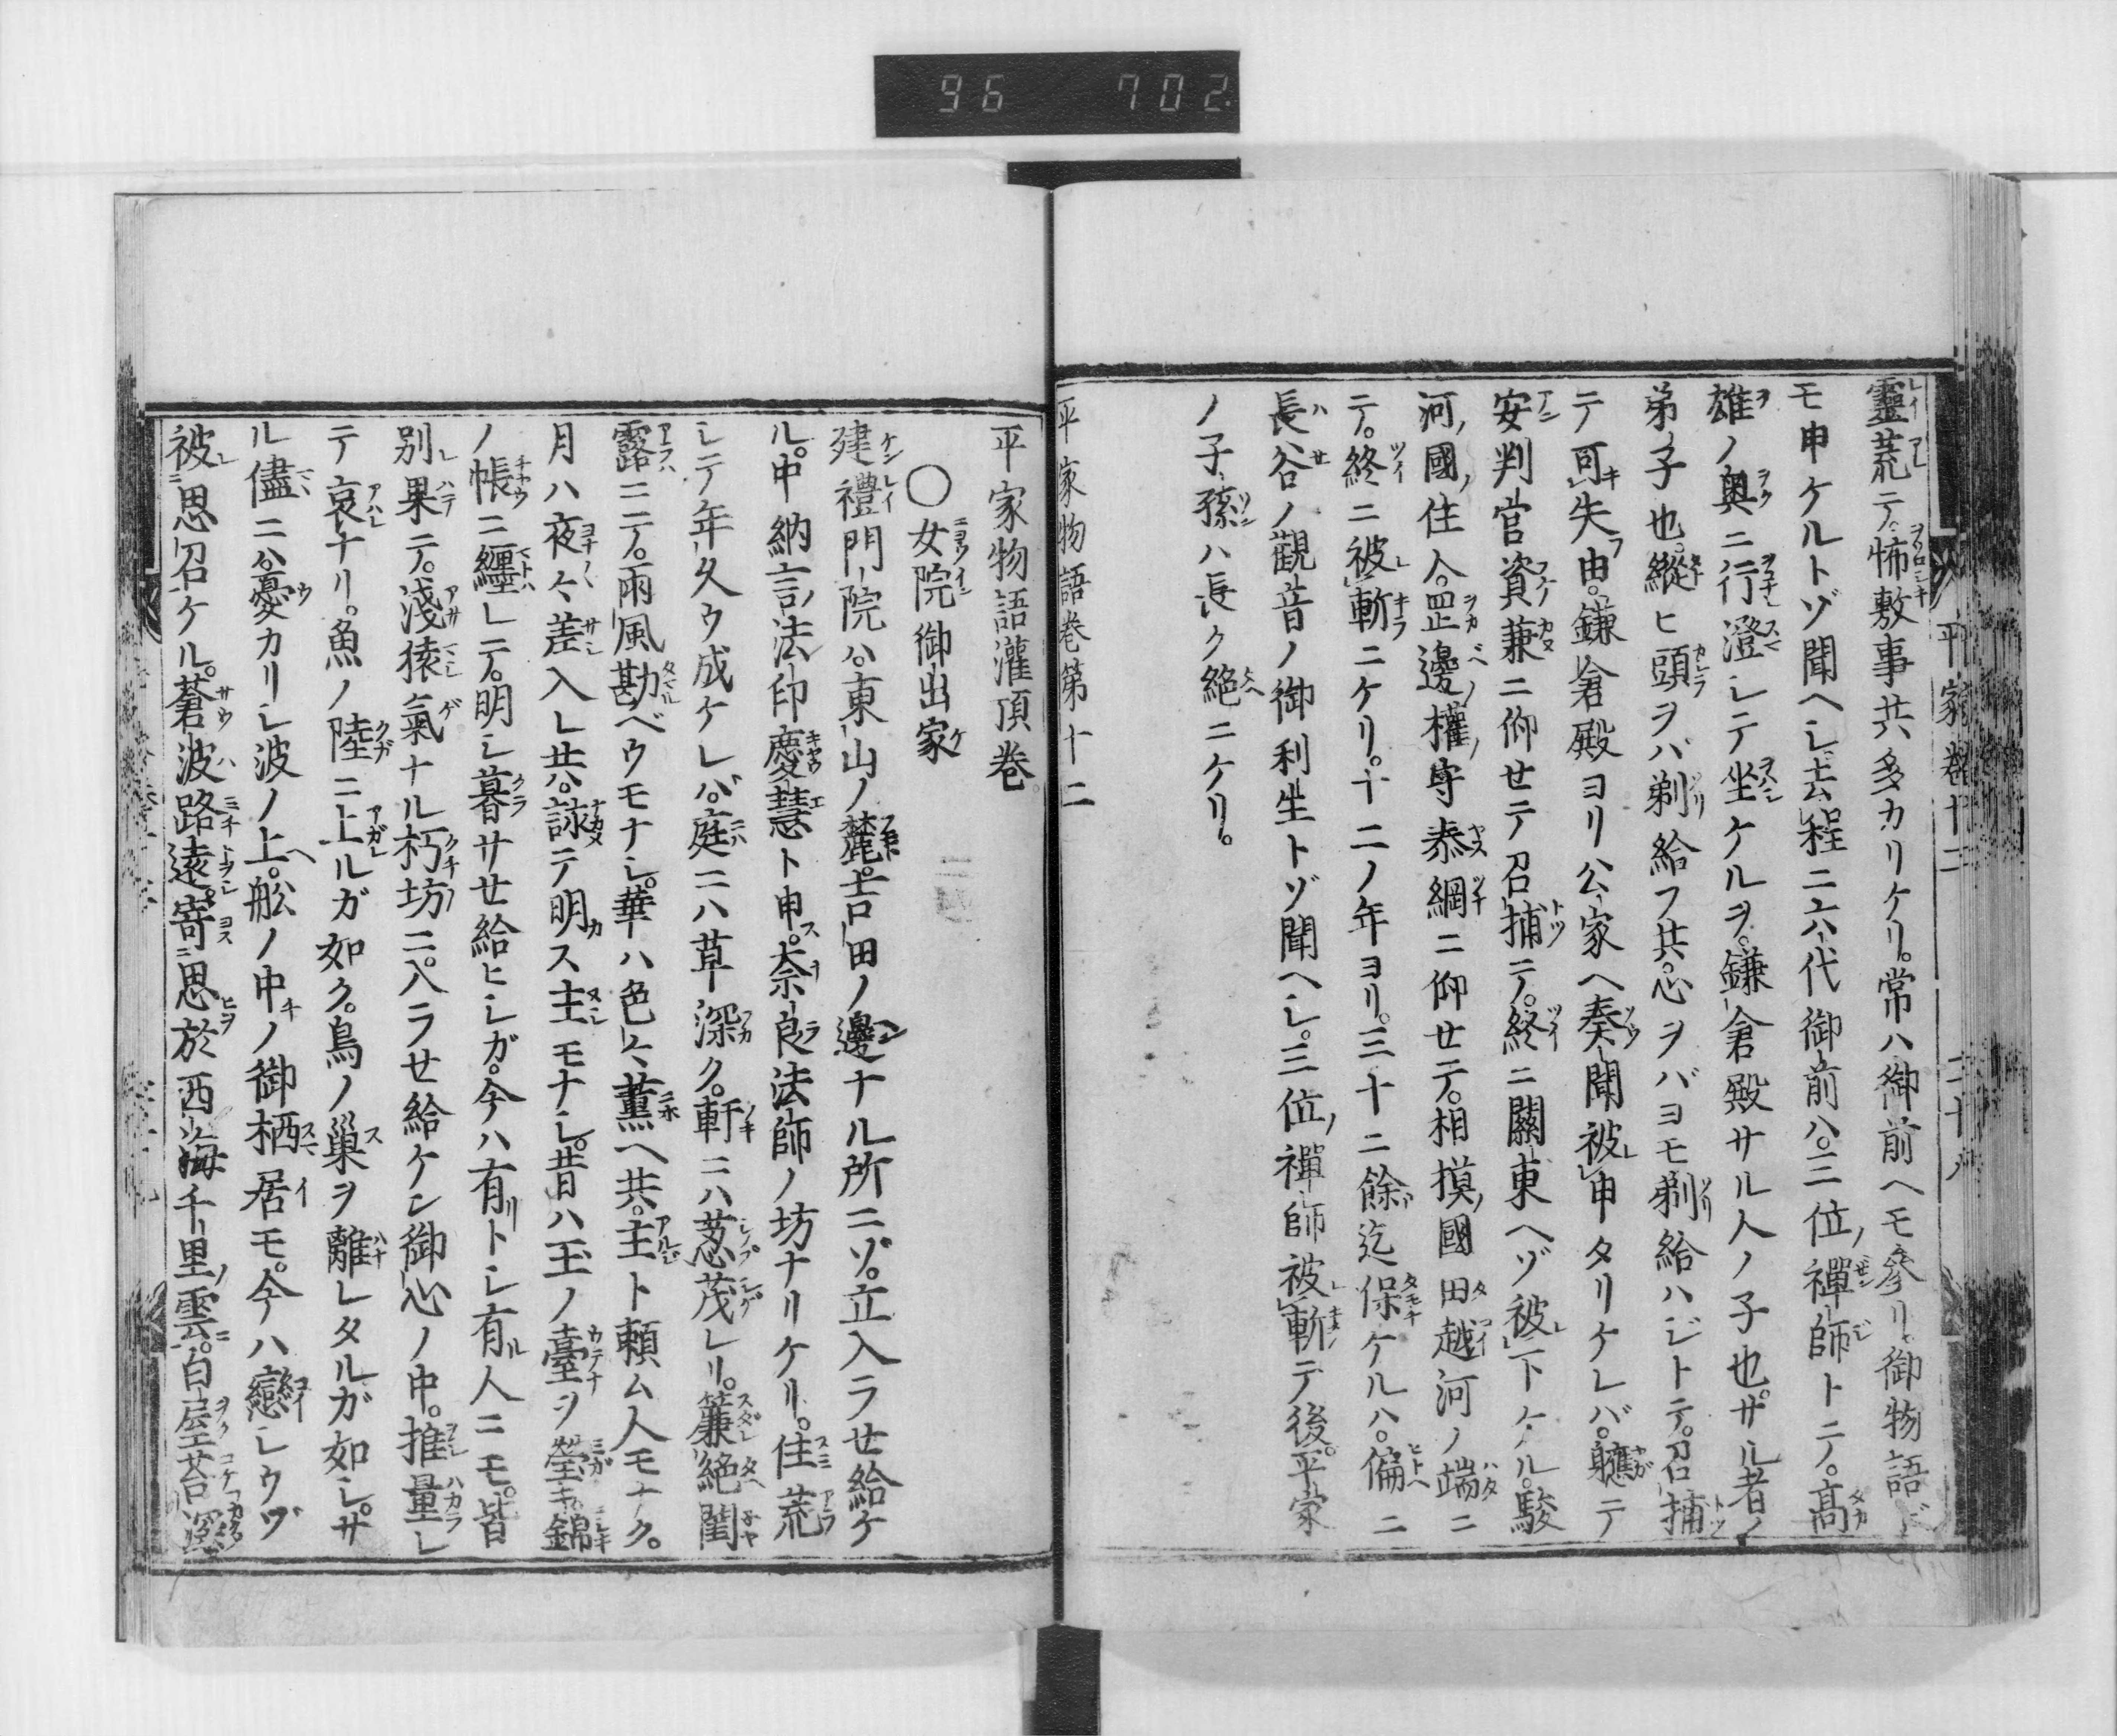 96 702
靈荒テ。怖敷事共多カリケリ。常ハ御前ヘモ參リ御物語ドモ
モ申ケルトゾ聞ヘシ去程ニ六代御前ハ。三位ノ禪師トニテ。高
雄ノ奥ニ行澄シテ坐ケルヲ。鎌倉殿サル人ノ子也。サル者ノ
弟子也。縱ヒ頭ヲバ剃給フ共。心ヲバヨモ剃給ハジトテ。召捕
テ可失由。鎌倉殿ヨリ公家ヘ奏聞被申タリケレバ。軈テ
安判官資兼ニ仰セテ召捕ニテ。終ニ關東ヘゾ被下ケル。駿
河ノ國ノ住人。罡邊ノ權ノ守泰綱ニ仰セテ。相摸ノ國田越河ノ端ニ
テ。終ニ被斬ニケリ。十二ノ年ヨリ。三十ニ餘迄保ケルハ。偏ニ
長谷ノ觀音ノ御利生トゾ聞ヘシ。三位ノ禪師被斬テ後。平家
ノ子孫ハ長ク絶ニケリ。
平家物語卷第十二
平家卷十二
平家物語灌頂卷
○女院御出家
建禮門院ハ。東山ノ麓。吉田ノ邊ナル所ニゾ。立入ラセ給ケ
ル。中納言ノ法印慶慧ト申ス。奈良法師ノ坊ナリケリ。住荒
シテ年久ウ成ケレバ。庭ニハ草深ク。軒ニハ荵茂レリ。簾絶閨
露ニテ。雨風勘ベウモナシ。華ハ色々薫ヘ共。主ト頼ム人モナク。
月ハ夜々差入レ共。詠テ明ス主モナシ。昔ハ玉ノ臺ヲ瑩キ。錦
ノ帳ニ纒レテ。明シ暮サセ給ヒシガ。今ハ有リトシ有ル人ニモ。皆
別レ果テ。淺猿氣ナル朽坊ニ。入ラセ給ケン御心ノ中。推量レ
テ哀ナリ。魚ノ陸ニ上ルガ如ク。鳥ノ巢ヲ離レタルガ如シ。サ
ル儘ニハ。憂カリシ波ノ上。舩ノ中ノ御栖居モ。今ハ戀シウゾ
被思召ケル。蒼波路遠。寄思於西海千里ノ雲。白屋苔深